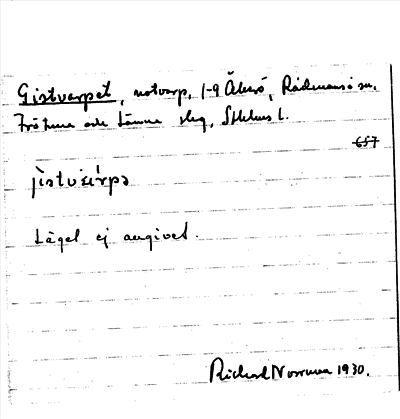 Gistvarpet, notvarp, 1-9 Åkerö, Rådmansö sn,
Frötuna och Länna slg, Sthlms l.
657
jìstvárpə
Läget ej angivet.
Richard Norrman 1930.